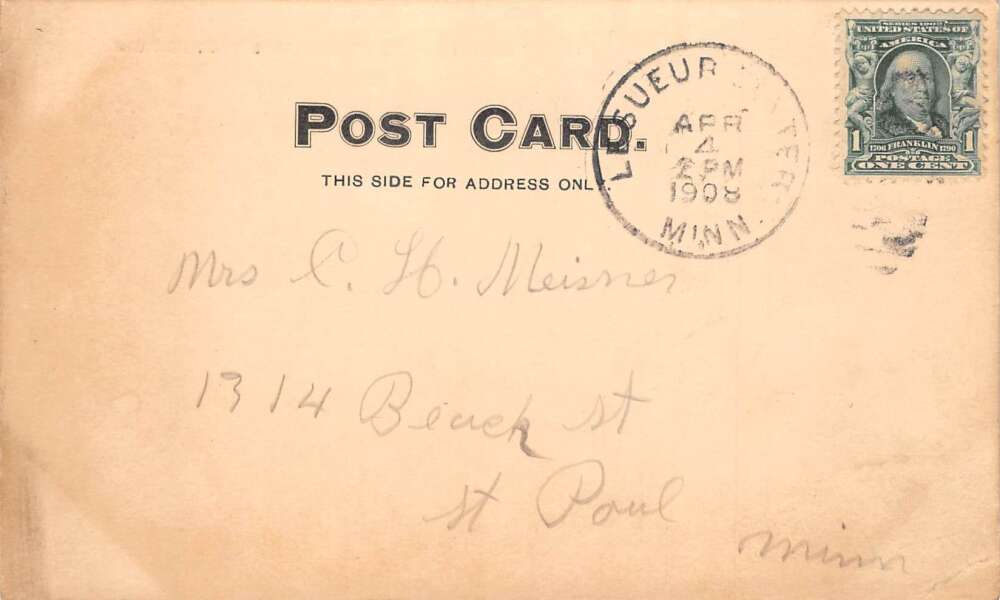 POST CARD.
THIS SIDE FOR ADDRESS ONLY
LE SUEUR CENTER
APR
4
2 PM
1908
MINN
SERIES 1902
UNITED STATES OF
AMERICA
1 1706 FRANKLIN 1790 1
POSTAGE
ONE CENT
Mrs C. H. Meisner
1314 Beach st
st Paul
Minn